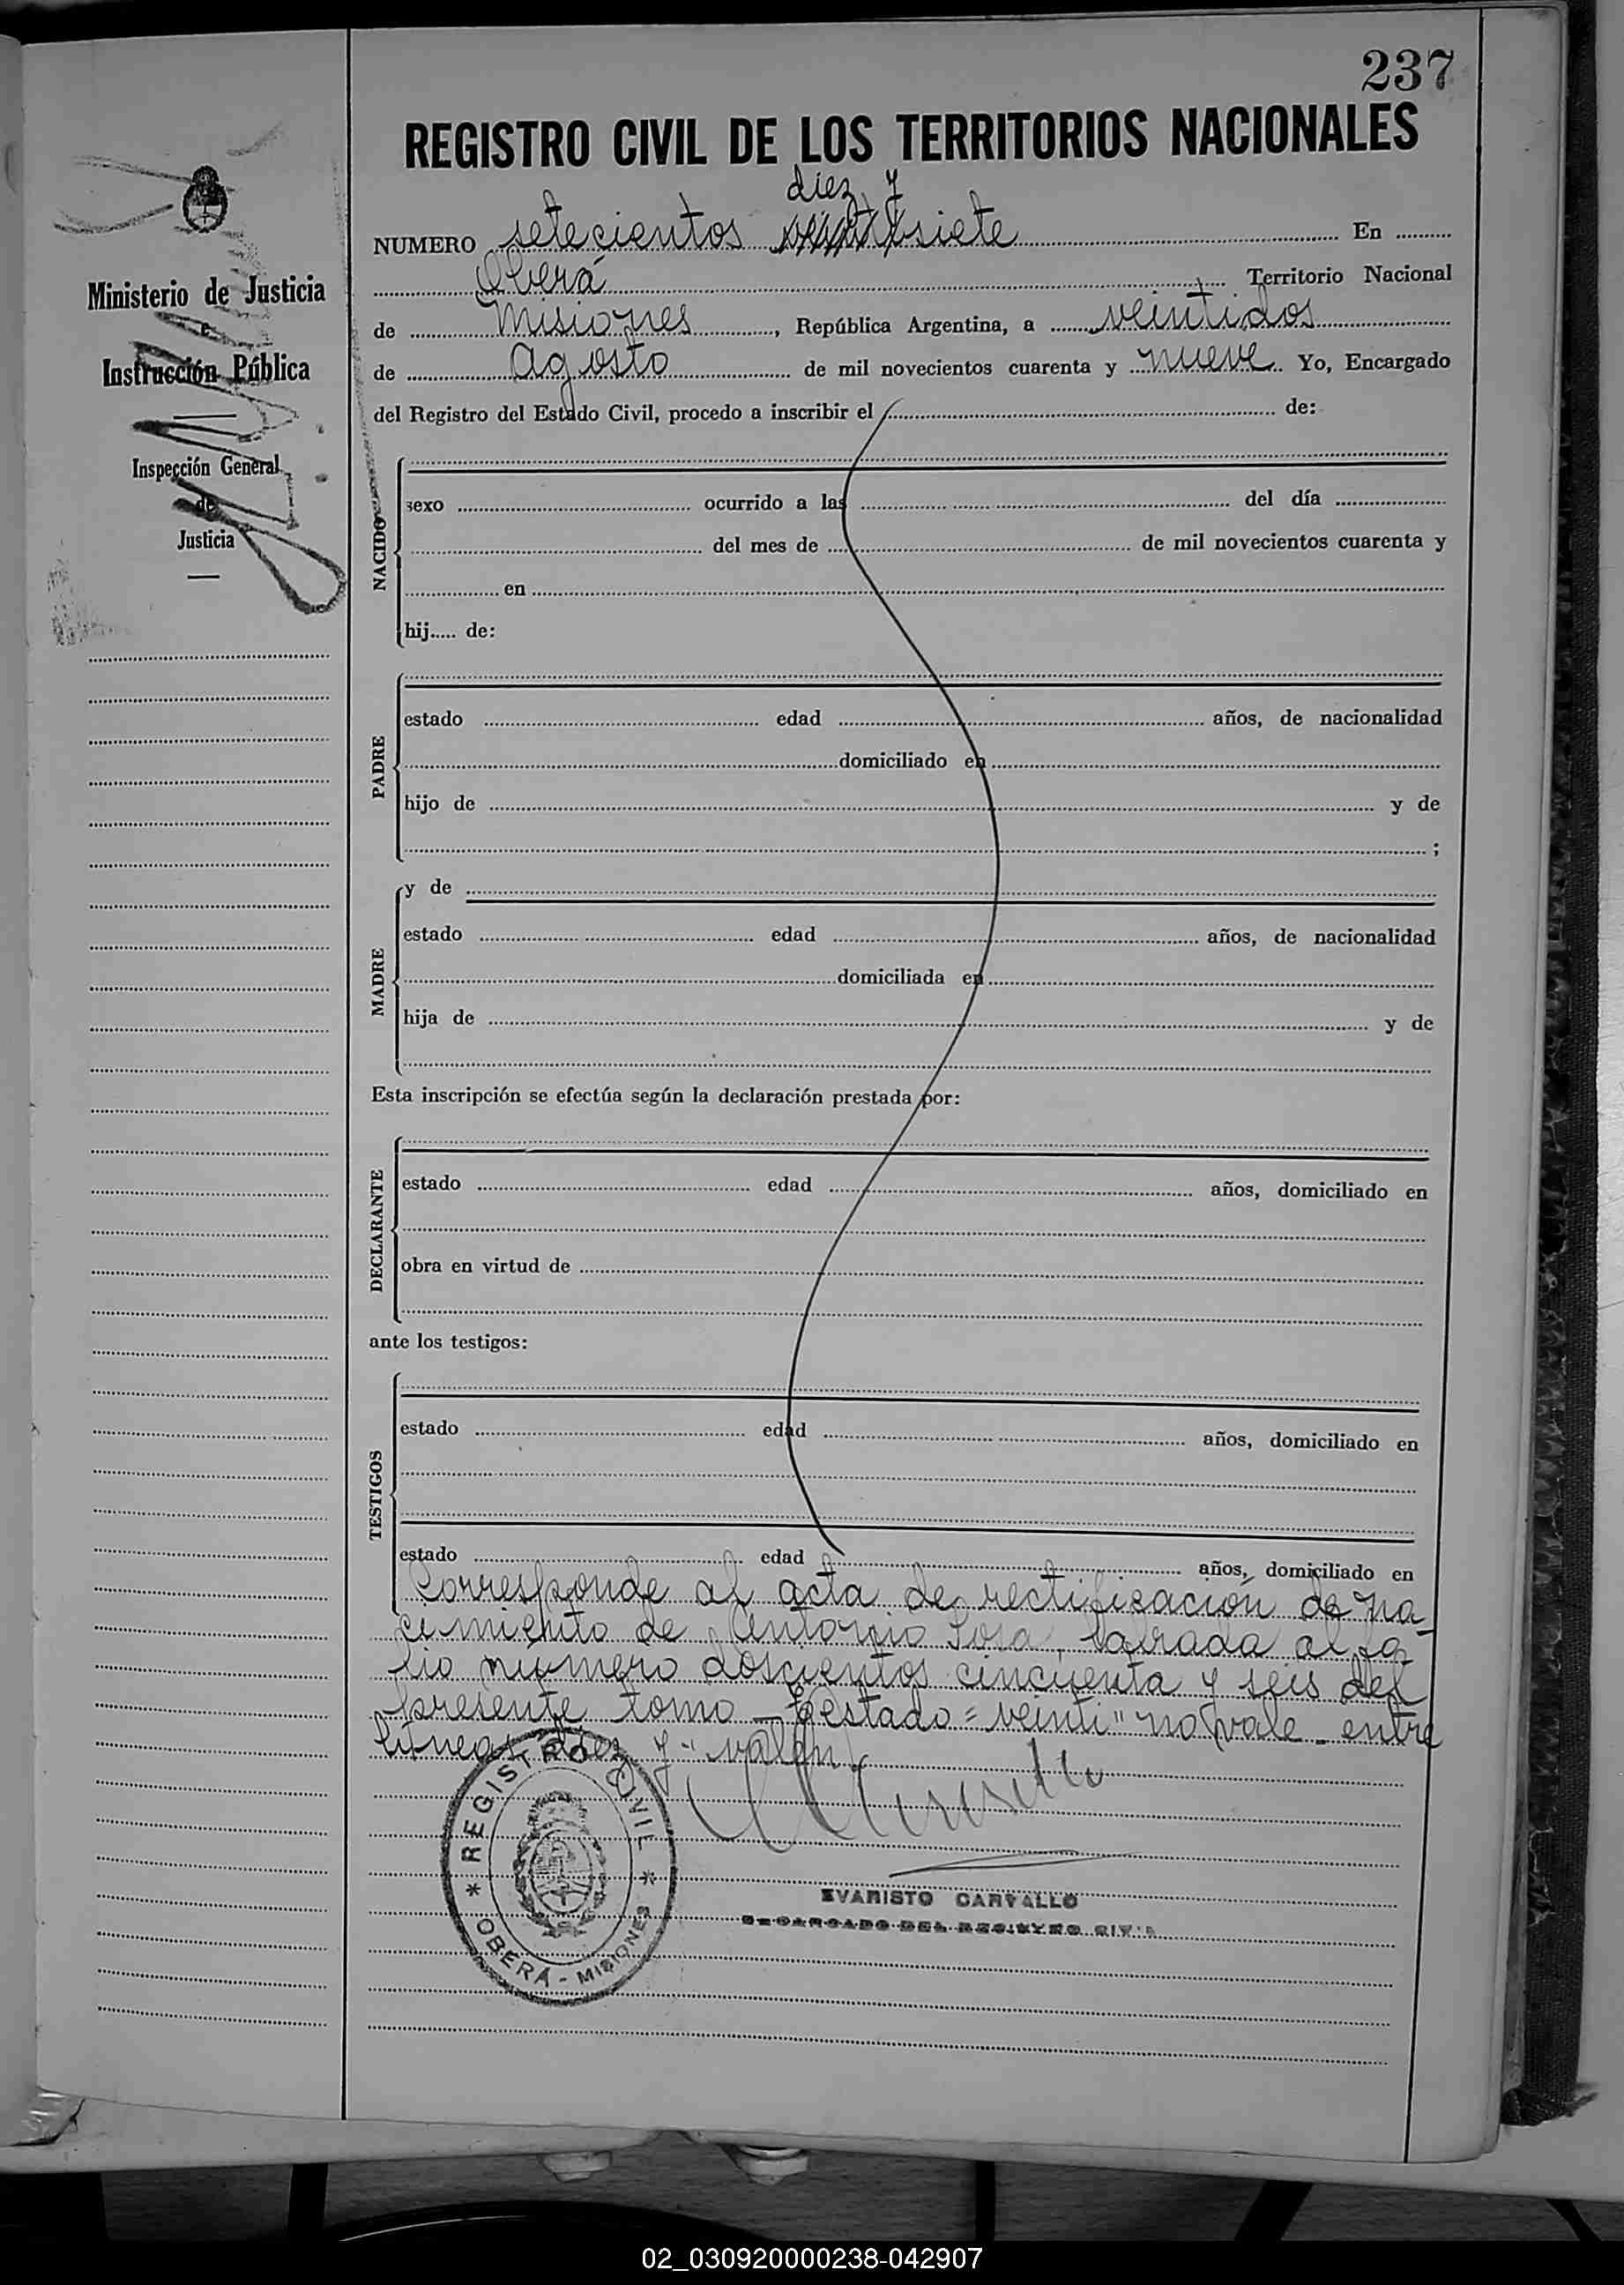 237
REGISTRO CIVIL DE LOS TERRITORIOS NACIONALES
diez y
NUMERO setecientos veintisiete En
Oberá Territorio Nacional
de Misiones, República Argentina, a veintidos
de Agosto de mil novecientos cuarenta y nueve. Yo, Encargado
del Registro del Estado Civil, procedo a inscribir el de:
Ministerio de Justicia
e
Instrucción Pública
Inspección General
de
Justicia
NACIDO
sexo ocurrido a las del día
del mes de de mil novecientos cuarenta y
en
hij..... de:
PADRE
estado edad años, de nacionalidad
domiciliado en
hijo de y de
;
MADRE
y de
estado edad años, de nacionalidad
domiciliada en
hija de y de
Esta inscripción se efectúa según la declaración prestada por:
DECLARANTE
estado edad años, domiciliado en
obra en virtud de
ante los testigos:
TESTIGOS
estado edad años, domiciliado en
estado edad años, domiciliado en
Corresponde al acta de rectificación de na-
cimiento de Antonio Sosa, labrada al fo-
lio numero doscientos cincuenta y seis del
presente tomo - Testado = veinti" no vale - entre
lineas diez y " valen
REGISTRO CIVIL
OBERÁ - MISIONES
EVARISTO CARVALLO
ENCARGADO DEL REGISTRO CIVIL
02_030920000238-042907